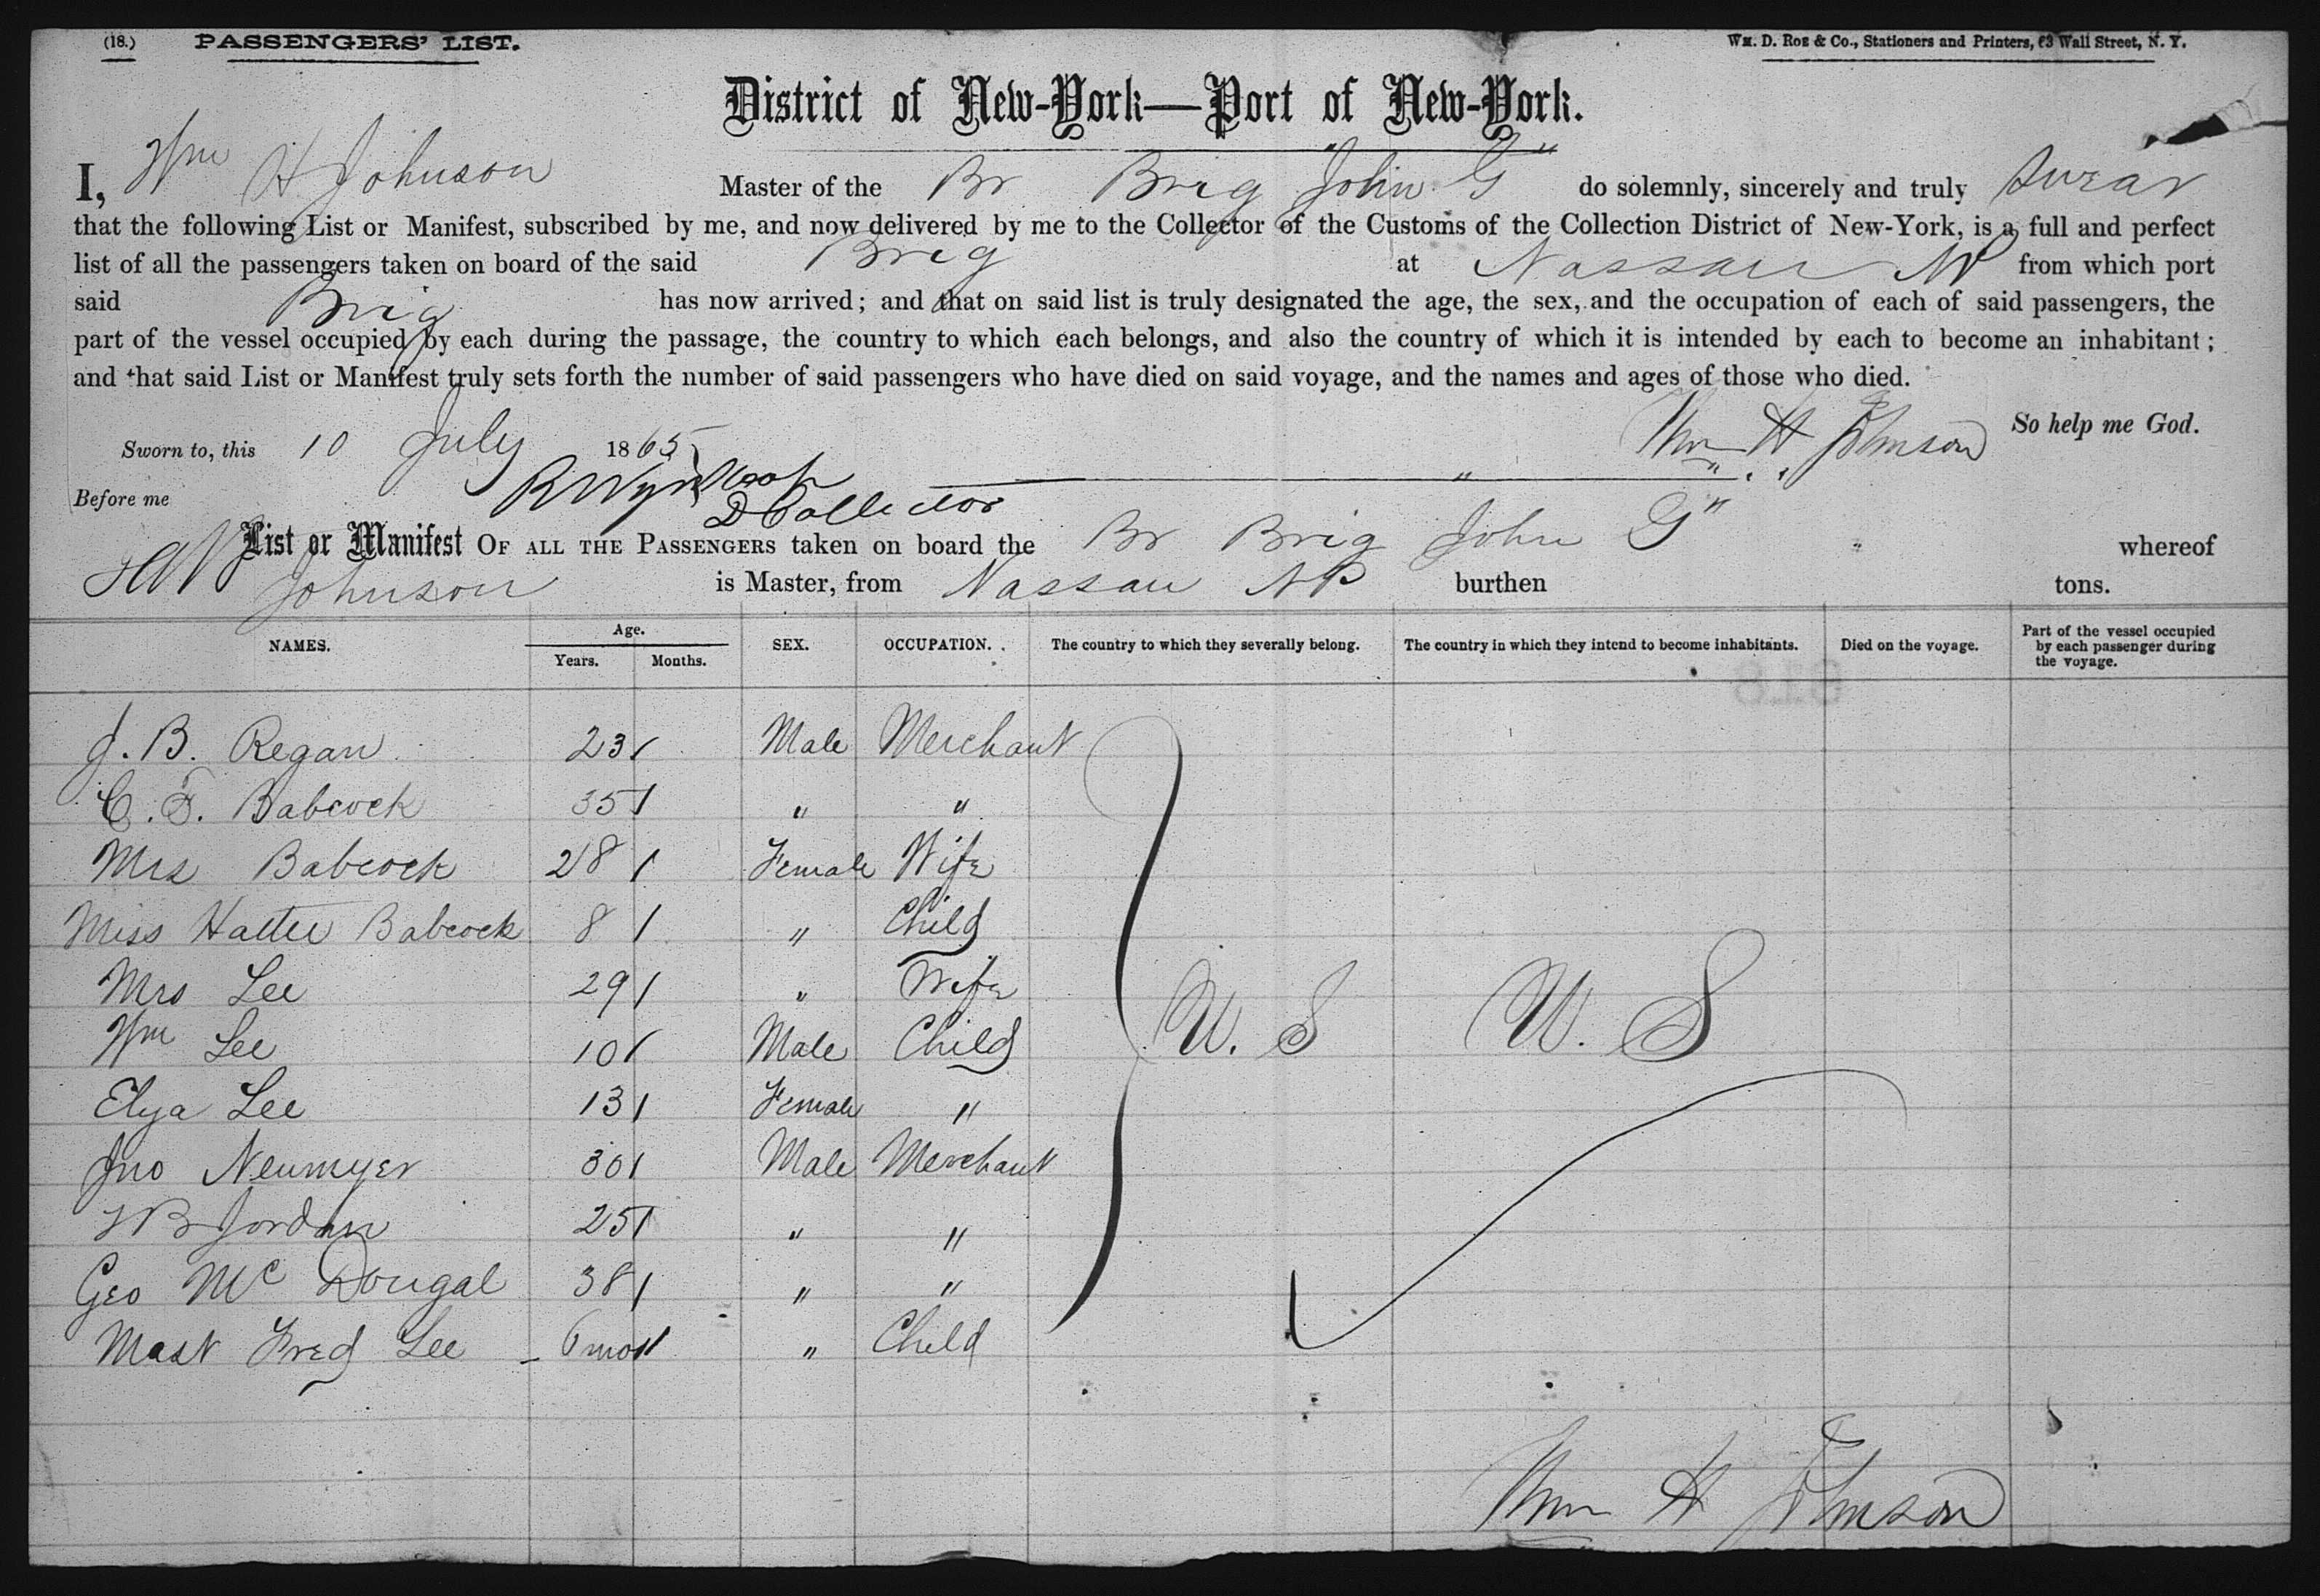 (18.) PASSENGERS' LIST. WM. D. ROE & Co., Stationers and Printers, 63 Wall Street, N. Y.
District of New-York—Port of New-York.
I, Wm H Johnson Master of the Br Brig "John G" do solemnly, sincerely and truly swear
that the following List or Manifest, subscribed by me, and now delivered by me to the Collector of the Customs of the Collection District of New-York, is a full and perfect
list of all the passengers taken on board of the said Brig at Nassau NP from which port
said Brig has now arrived; and that on said list is truly designated the age, the sex, and the occupation of each of said passengers, the
part of the vessel occupied by each during the passage, the country to which each belongs, and also the country of which it is intended by each to become an inhabitant;
and that said List or Manifest truly sets forth the number of said passengers who have died on said voyage, and the names and ages of those who died.
So help me God.
Sworn to, this 10 July 1865 Wm H Johnson
Before me R Wynkoop
D Collector
List or Manifest OF ALL THE PASSENGERS taken on board the Br Brig John G" whereof
Johnson is Master, from Nassau NP burthen tons.
NAMES. Age. Years. Months. SEX. OCCUPATION. The country to which they severally belong. The country in which they intend to become inhabitants. Died on the voyage. Part of the vessel occupied by each passenger during the voyage.
J. B. Regan 23 / Male Merchant
C. F. Babcock 35 / " "
Mrs Babcock 28 / Female Wife
Miss Hattie Babcock 8 / " Child
Mrs Lee 29 / " Wife
Wm Lee 10 / Male Child U. S U. S
Elya Lee 13 / Female "
Jno Neumyer 30 / Male Merchant
Jordan 25 / " "
Geo McDougal 38 / " "
Mast Fred Lee 6 mo " Child
Wm H Johnson